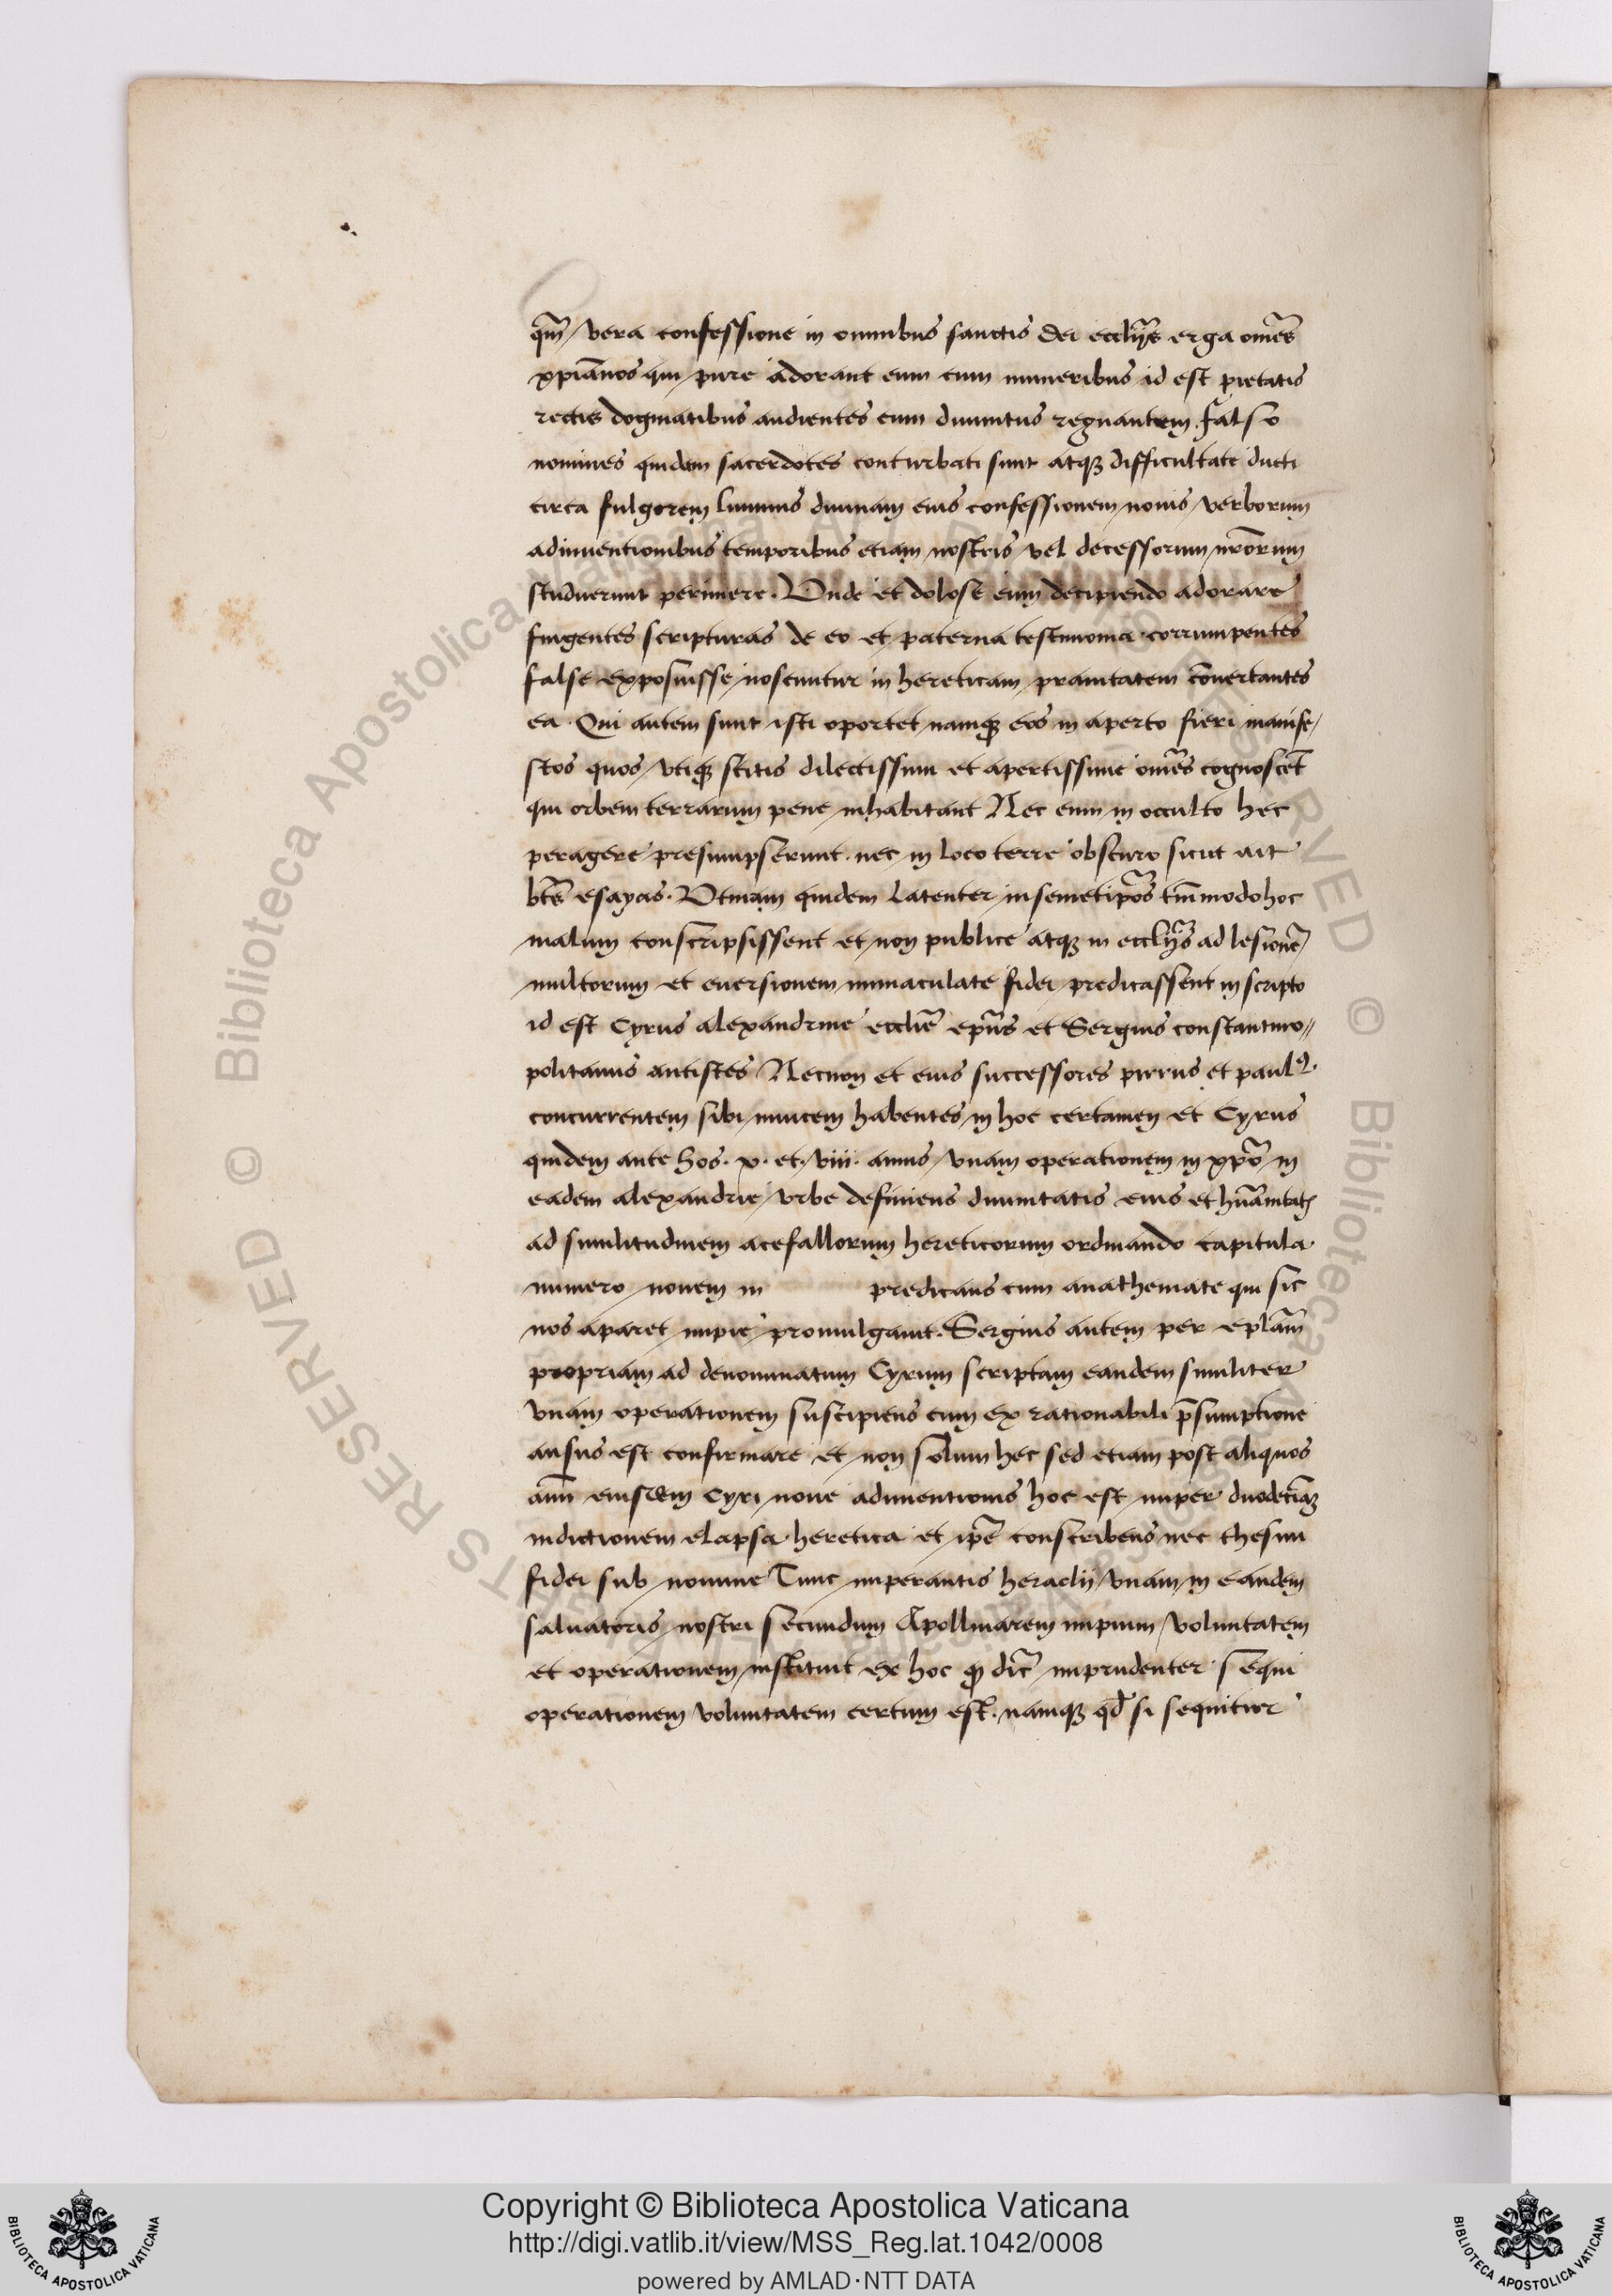 qm̃ vera confessione in omnibus sanctis dei eccliȷ̃s erga om̃es
xpĩanos qui pure adorant eum cum muneribus id est pietatis
rectis dogmatibus audientes eum diuinitus regnantem. falso
nomines quidem sacerdotes conturbati sunt atqꝫ difficultate ducti
circa fulgorem luminis diuinam eius confessionem nouis verborum
adinuentionibus temporibus etiam nostris vel decessorum nr̃orum
studuerunt perimere. Unde et dolose eum decipiendo adorare
fingentes scripturas de eo et paterna testimonia corrumpentes
false exposuisse noscuntur in hereticam prauitatem cõuertantes
ea. Qui autem sunt isti oportet namqꝫ eos in aperto fieri manife/
stos quos vtiqꝫ scitis dilectissimi et apertissime om̃es cognoscẽt
qui orbem terrarum pene inhabitant Nec enim in occulto hec
peragere presumpserunt. nec in loco terre obscuro sicut ait
bt̃s esayas. Utinam quidem latenter in semetip̃os tm̃modo hoc
malum conscripsissent et non publice atqꝫ in eccliȷ̃s ad lesionẽ
multorum et euersionem immaculate fidei predicassent in scripto
id est Cyrus alexandrine ecclie̅ ep̃us et Sergius constantino//
politanus antistes Necnon et eius successores pirrus et paulꝰ.
concurrentem sibi inuicem habentes in hoc certamen et Cyrus
quidem ante hos. x. et. viii. annis vnam operationem in xp̃o in
eadem alexandrie vrbe definiens diuinitatis eius et hũanitatis
ad similitudinem acefallorum hereticorum ordinando capitula
numero nouem in predicans cum anathemate qui sic
nos aparet impie promulgauit. Sergius autem per ep̃lam
propriam ad denominatum Cyrum scriptam eandem similiter
vnam operationem suscipiens eum ex rationabili p̃sumptione
ausus est confirmare et non solum hec sed etiam post aliquos
ann̅ eiusdem Cyri noue adinuentionis hoc est nuper duodeciãꝫ
indictionem elapsa heretica et ip̃e conscribens nec thesim
fidei sub nomine Tunc imperantis heraclij vnam in eandem
saluatoris nostri secundum Apollinarem impium voluntatem
et operationem instituit ex hoc ꝙ dic̃ imprudenter sequi
operationem voluntatem certum est. namqꝫ qd̃ si sequitur
Copyright © Biblioteca Apostolica Vaticana
http://digi.vatlib.it/view/MSS_Reg.lat.1042/0008
powered by AMLAD·NTT DATA